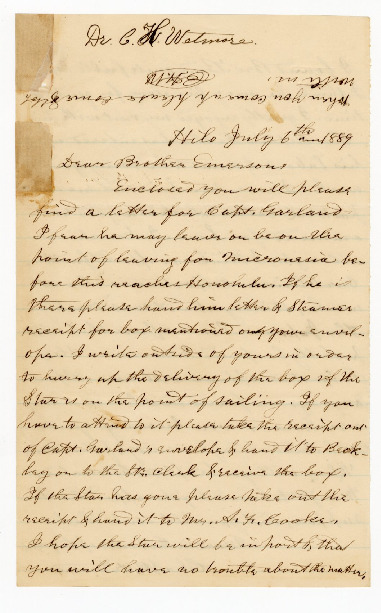 Dr. C. H. Wetmore.
When you come up please come
Hilo July 6th 1889
Dear Brother Emerson
Enclosed you will please
find a letter for Capt. Garland
I fear he may leave or be on the
point of leaving for Micronesia be-
fore this reaches Honolulu. If he is
there please hand him letter & Steamer
receipt for box mentioned on your envel-
ope. I write outside of yours in order
to hurry up the delivery of the box if the
Star is on the point of sailing. If you
have to attend to it please take the receipt out
of Capt. Garland's envelope & hand it to
on to the Str. Clerk & receive the box.
If the Star has gone please take out the
receipt & hand it to Mr. Cooke.
I hope the Star will be in port & that
you will have no trouble about the matter,